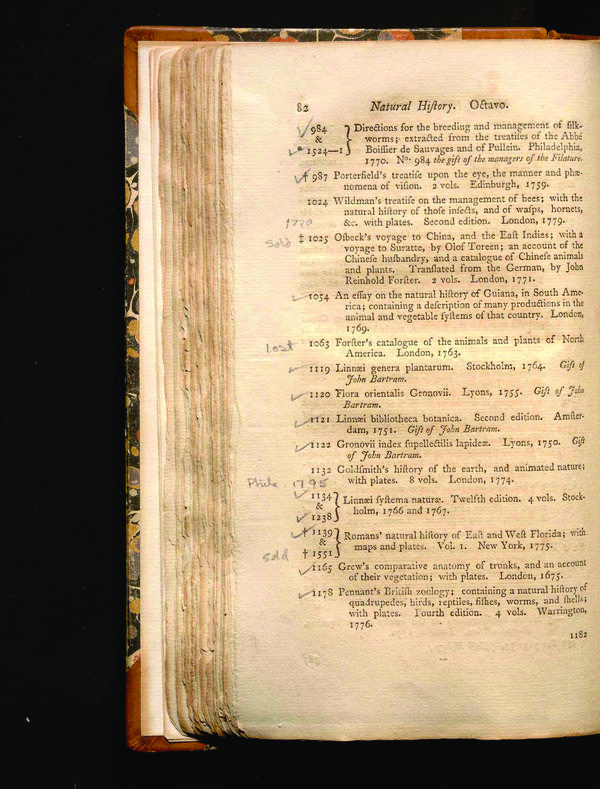 82 Natural Hiſtory. Octavo.
984 & 1524—1 } Directions for the breeding and management of ſilk-
worms; extracted from the treatiſes of the Abbé
Boiſſier de Sauvages and of Pullein. Philadelphia,
1770. No. 984 the gift of the managers of the Filature.
† 987 Porterfield's treatiſe upon the eye, the manner and phæ-
nomena of viſion. 2 vols. Edinburgh, 1759.
1024 Wildman's treatiſe on the management of bees; with the
natural hiſtory of thoſe inſects, and of waſps, hornets,
1770 &c. with plates. Second edition. London, 1779.
Sold ‡ 1025 Oſbeck's voyage to China, and the Eaſt Indies; with a
voyage to Suratte, by Olof Toreen; an account of the
Chineſe huſbandry, and a catalogue of Chineſe animals
and plants. Tranſlated from the German, by John
Reinhold Forſter. 2 vols. London, 1771.
1054 An eſſay on the natural hiſtory of Guiana, in South Ame-
rica; containing a deſcription of many productions in the
animal and vegetable ſyſtems of that country. London,
1769.
Lost 1063 Forſter's catalogue of the animals and plants of North
America. London, 1763.
1119 Linnæi genera plantarum. Stockholm, 1764. Gift of
John Bartram.
1120 Flora orientalis Gronovii. Lyons, 1755. Gift of John
Bartram.
1121 Linnæi bibliotheca botanica. Second edition. Amſter-
dam, 1751. Gift of John Bartram.
1122 Gronovii index ſupellectilis lapideæ. Lyons, 1750. Gift
of John Bartram.
1132 Goldſmith's hiſtory of the earth, and animated nature;
with plates. 8 vols. London, 1774.
Phila. 1795
1134 & 1238 } Linnæi ſyſtema naturæ. Twelfth edition. 4 vols. Stock-
holm, 1766 and 1767.
† 1139 & † 1551 } Romans' natural hiſtory of Eaſt and Weſt Florida; with
Sold maps and plates. Vol. 1. New York, 1775.
1165 Grew's comparative anatomy of trunks, and an account
of their vegetation; with plates. London, 1675.
1178 Pennant's Britiſh zoology; containing a natural hiſtory of
quadrupedes, birds, reptiles, fiſhes, worms, and ſhells;
with plates. Fourth edition. 4 vols. Warrington,
1776.
1182